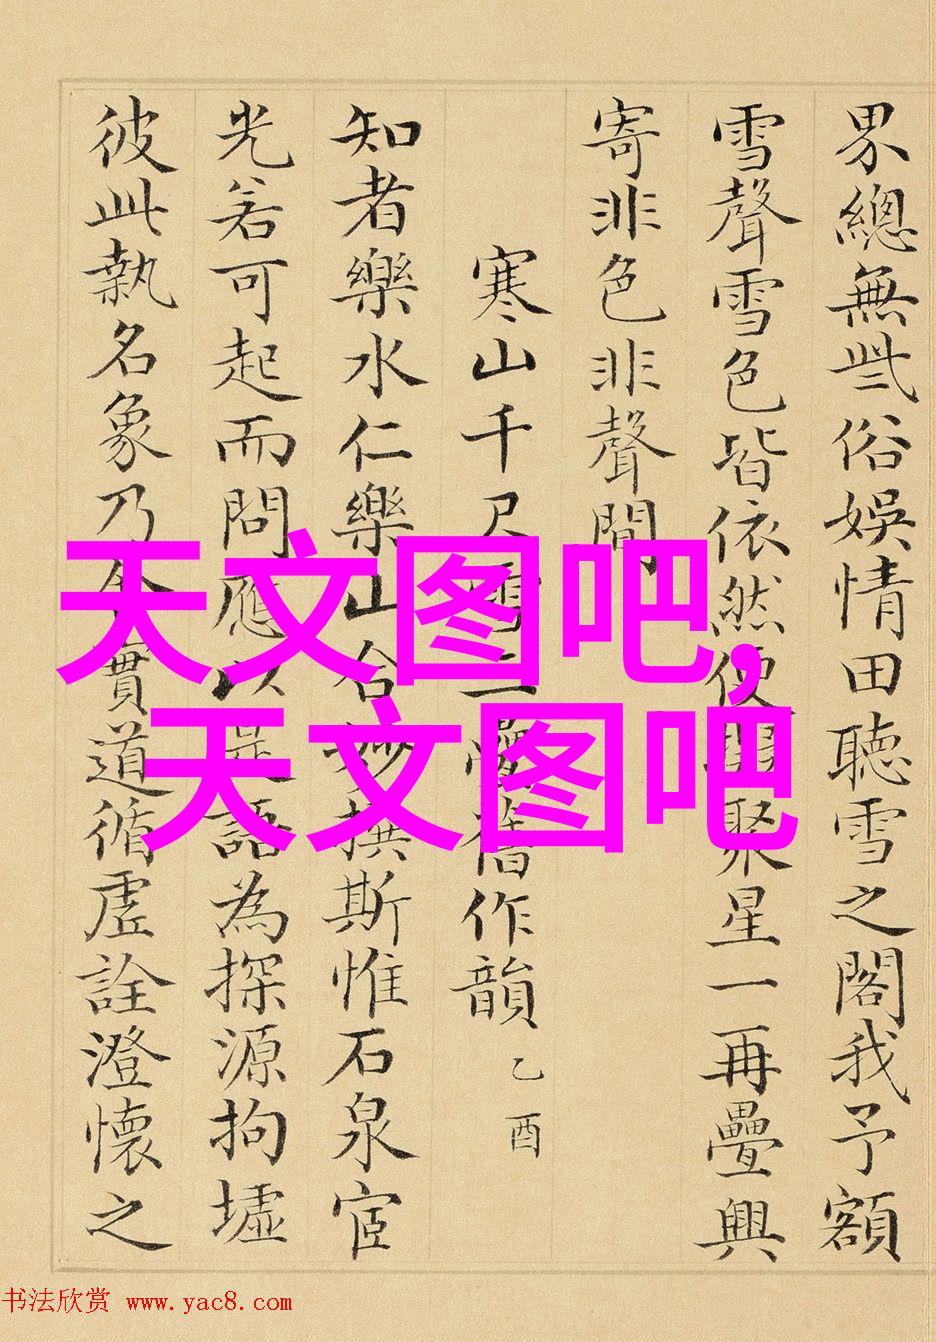 界總無些俗娛情田聽雪之閣我予額
雪聲雪色皆依然便聚星一再疊興
寄非色非聲間
寒山千尺雪二疊舊作韻 乙酉
知者樂水仁樂山合妙撰斯惟石泉宦
光若可起而問應以是語為探源拘墟
彼此執名象乃道循虛詮澄懷之
天文图吧,
天文图吧
书法欣赏 www.yac8.com